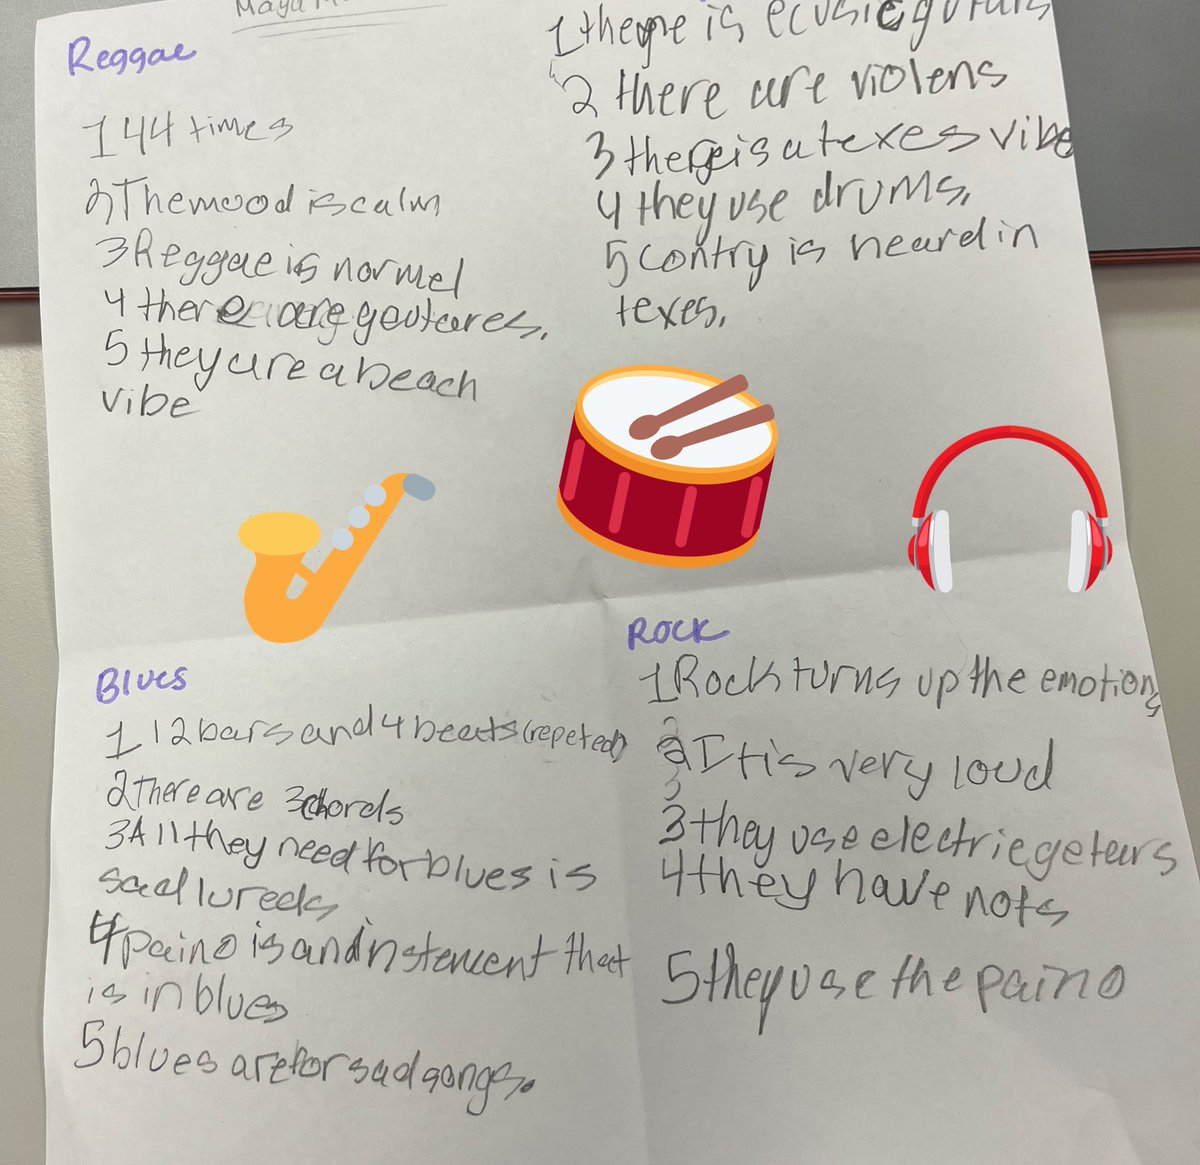 Maya
Reggae
1 44 times
2 The mood is calm
3 Reggae is normel
4 there are geuteres.
5 they are a beach
vibe
1 there is ecusic
2 there are violens
3 there is a texes vibe
4 they use drums.
5 contry is heard in
texes.
Blues
1 12 bars and 4 beats (repeted)
2 There are 3 chords
3 All they need for blues is
sad lurecks
4 paino is and instement that
is in blues
5 blues are for sad songs.
Rock
1 Rock turns up the emotions
2 It is very loud
3 they use electrie geteurs
4 they have nots
5 they use the paino